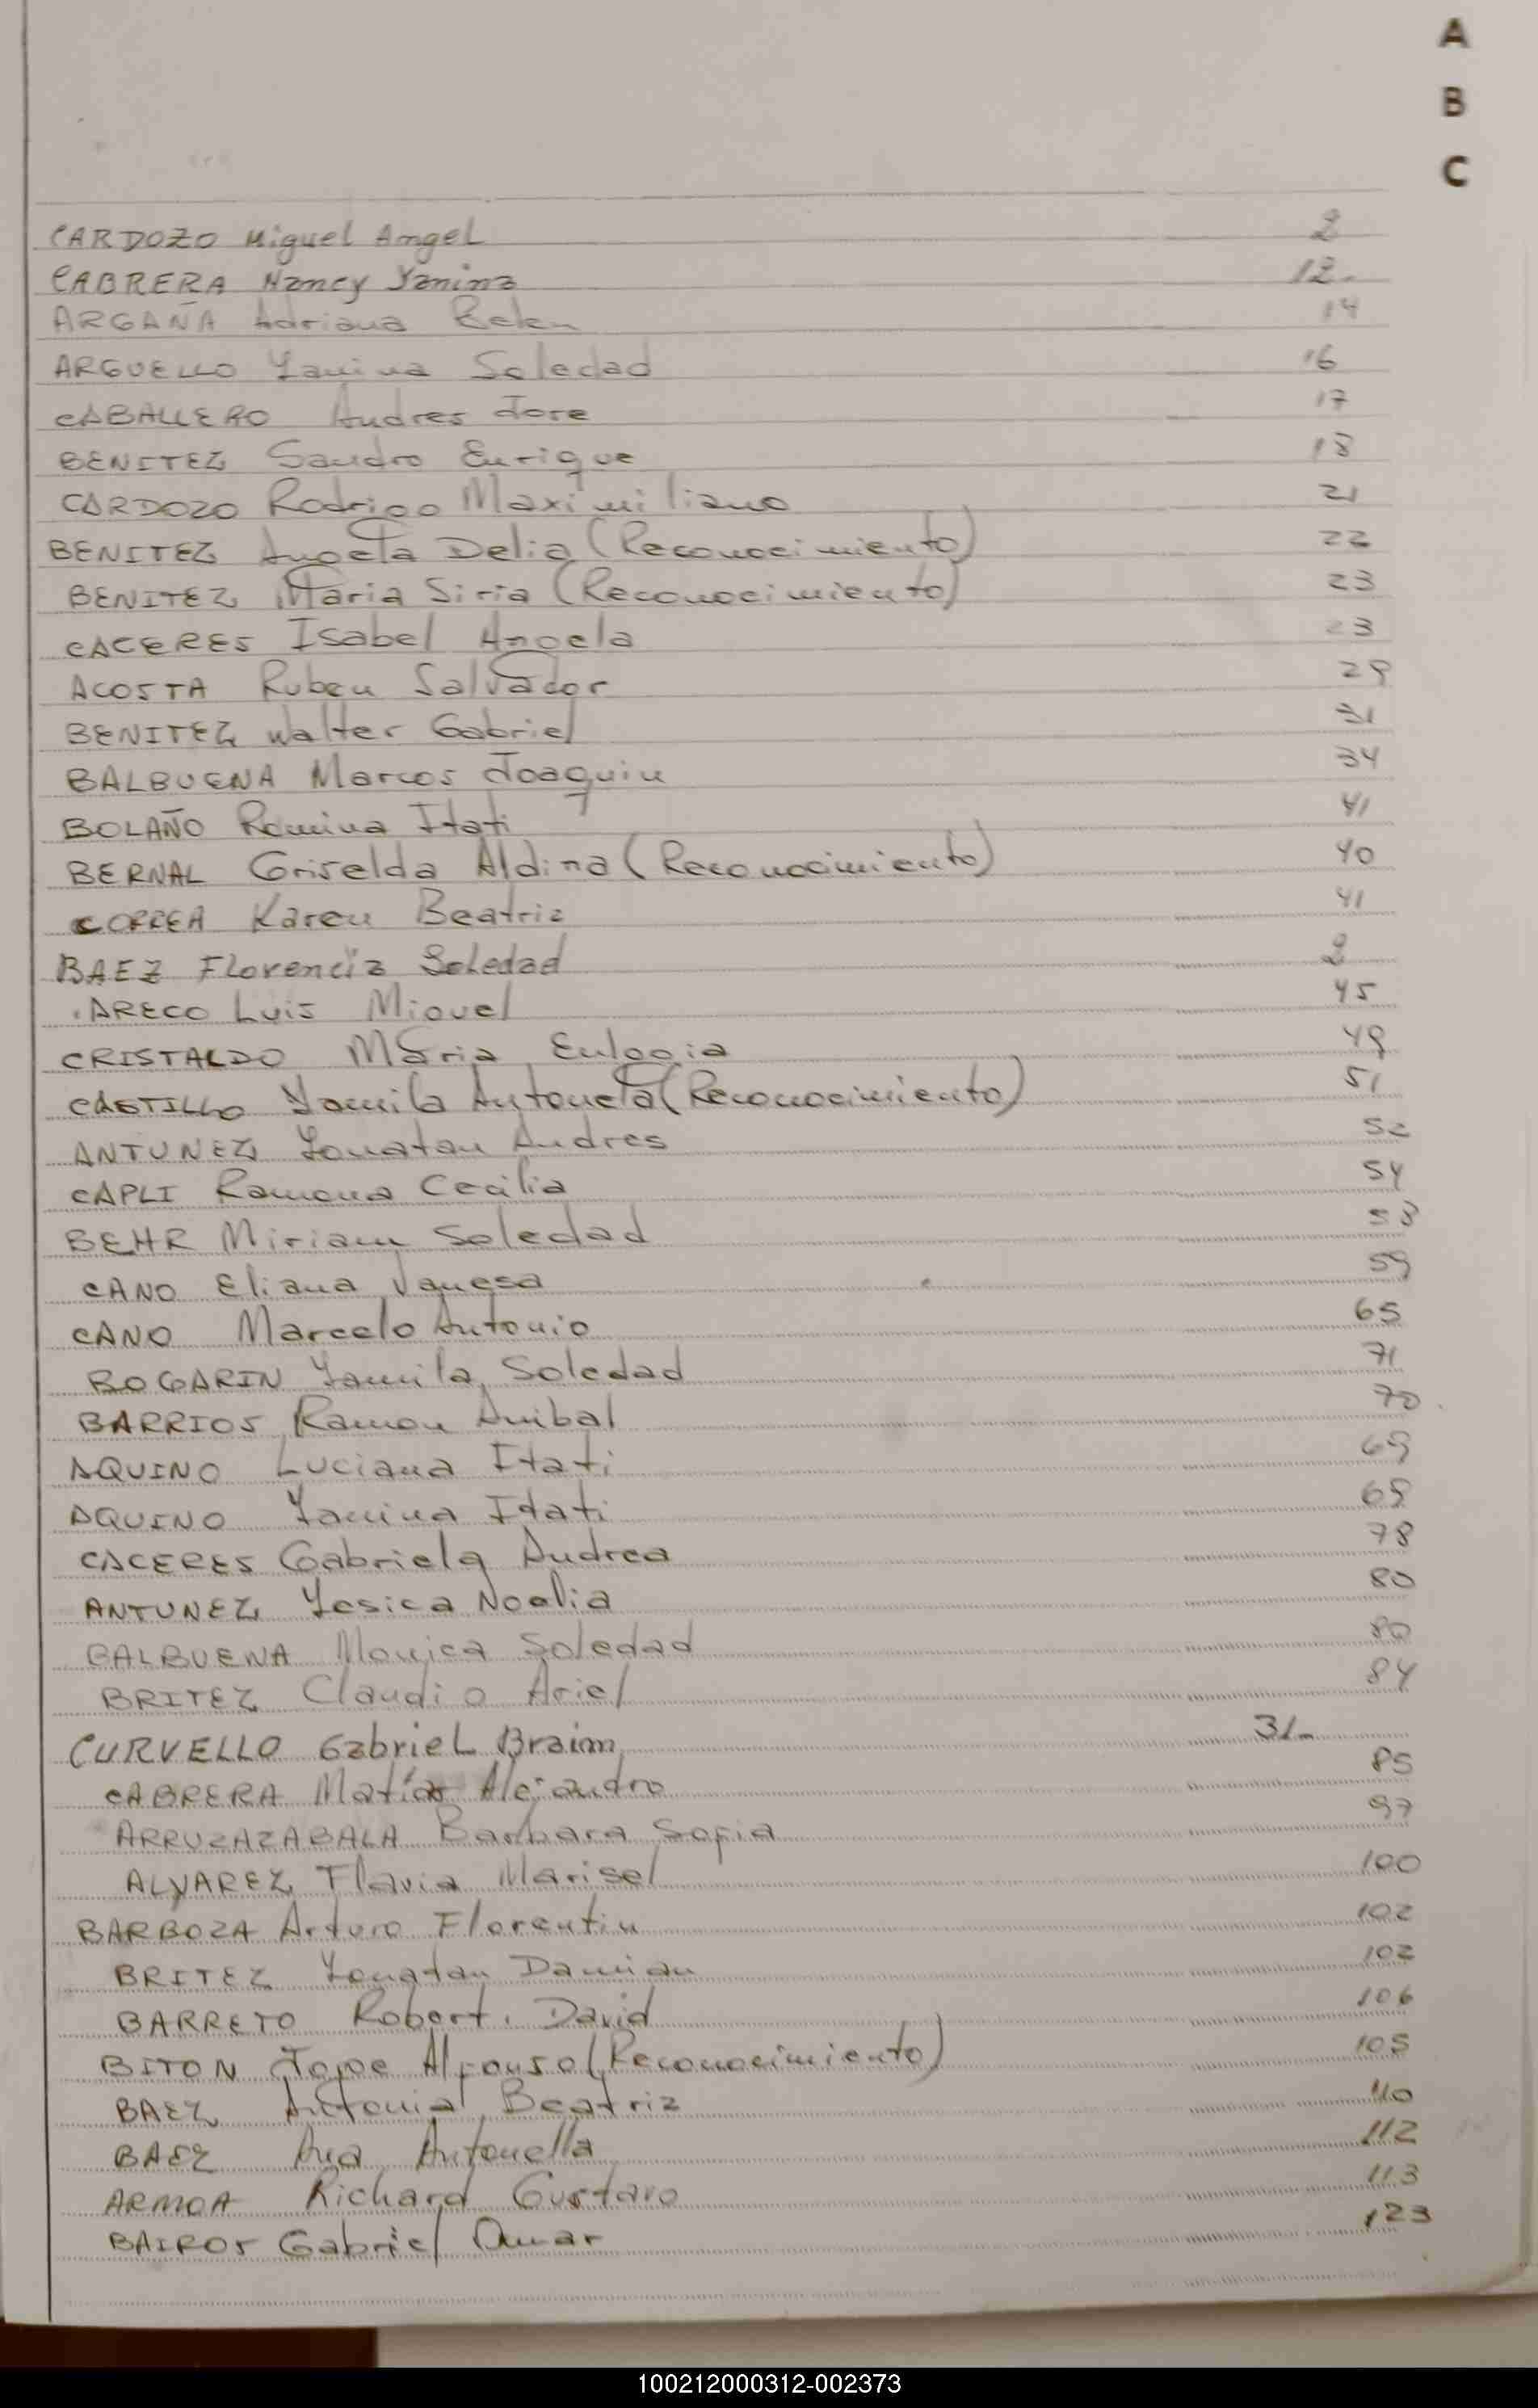 A
B
C
CARDOZO Miguel Angel 2
CABRERA Nancy Yanina 12.
ARGAÑA Adriana Belen 14
ARGUELLO Yanina Soledad 16
CABALLERO Andres Jose 17
BENITEZ Sandro Enrique 18
CARDOZO Rodrigo Maximiliano 21
BENITEZ Angela Delia (Reconocimiento) 22
BENITEZ Maria Siria (Reconocimiento) 23
CACERES Isabel Angela 23
ACOSTA Ruben Salvador 29
BENITEZ Walter Gabriel 31
BALBUENA Marcos Joaquin 34
BOLAÑO Romina Itati 41
BERNAL Griselda Aldina (Reconocimiento) 40
CORREA Karen Beatriz 41
BAEZ Florencia Soledad 2
ARECO Luis Miguel 45
CRISTALDO Maria Eulogia 49
CASTILLO Yamila Antonela (Reconocimiento) 51
ANTUNEZ Yonatan Andres 52
CAPLI Ramona Cecilia 54
BEHR Miriam Soledad 58
CANO Eliana Vanesa 59
CANO Marcelo Antonio 65
BOGARIN Yamila Soledad 71
BARRIOS Ramon Anibal 70
AQUINO Luciana Itati 69
AQUINO Yanina Itati 69
CACERES Gabriela Andrea 78
ANTUNEZ Yesica Noelia 80
BALBUENA Monica Soledad 80
BRITEZ Claudio Ariel 84
CURVELLO Gabriel Braim 31-
CABRERA Matias Alejandro 85
ARRUZAZABALA Barbara Sofia 97
ALVAREZ Flavia Marisel 100
BARBOZA Arturo Florentin 102
BRITEZ Yonatan Damian 102
BARRETO Robert David 106
BITON Jorge Alfonso (Reconocimiento) 105
BAEZ Antonia Beatriz 110
BAEZ Ana Antonella 112
ARMOA Richard Gustavo 113
BAIROS Gabriel Omar 123
100212000312-002373